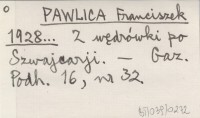 PAWLICA Franciszek
1928... Z wędrówki po
Szwajcarji. — Gaz.
Podh. 16, nr 32